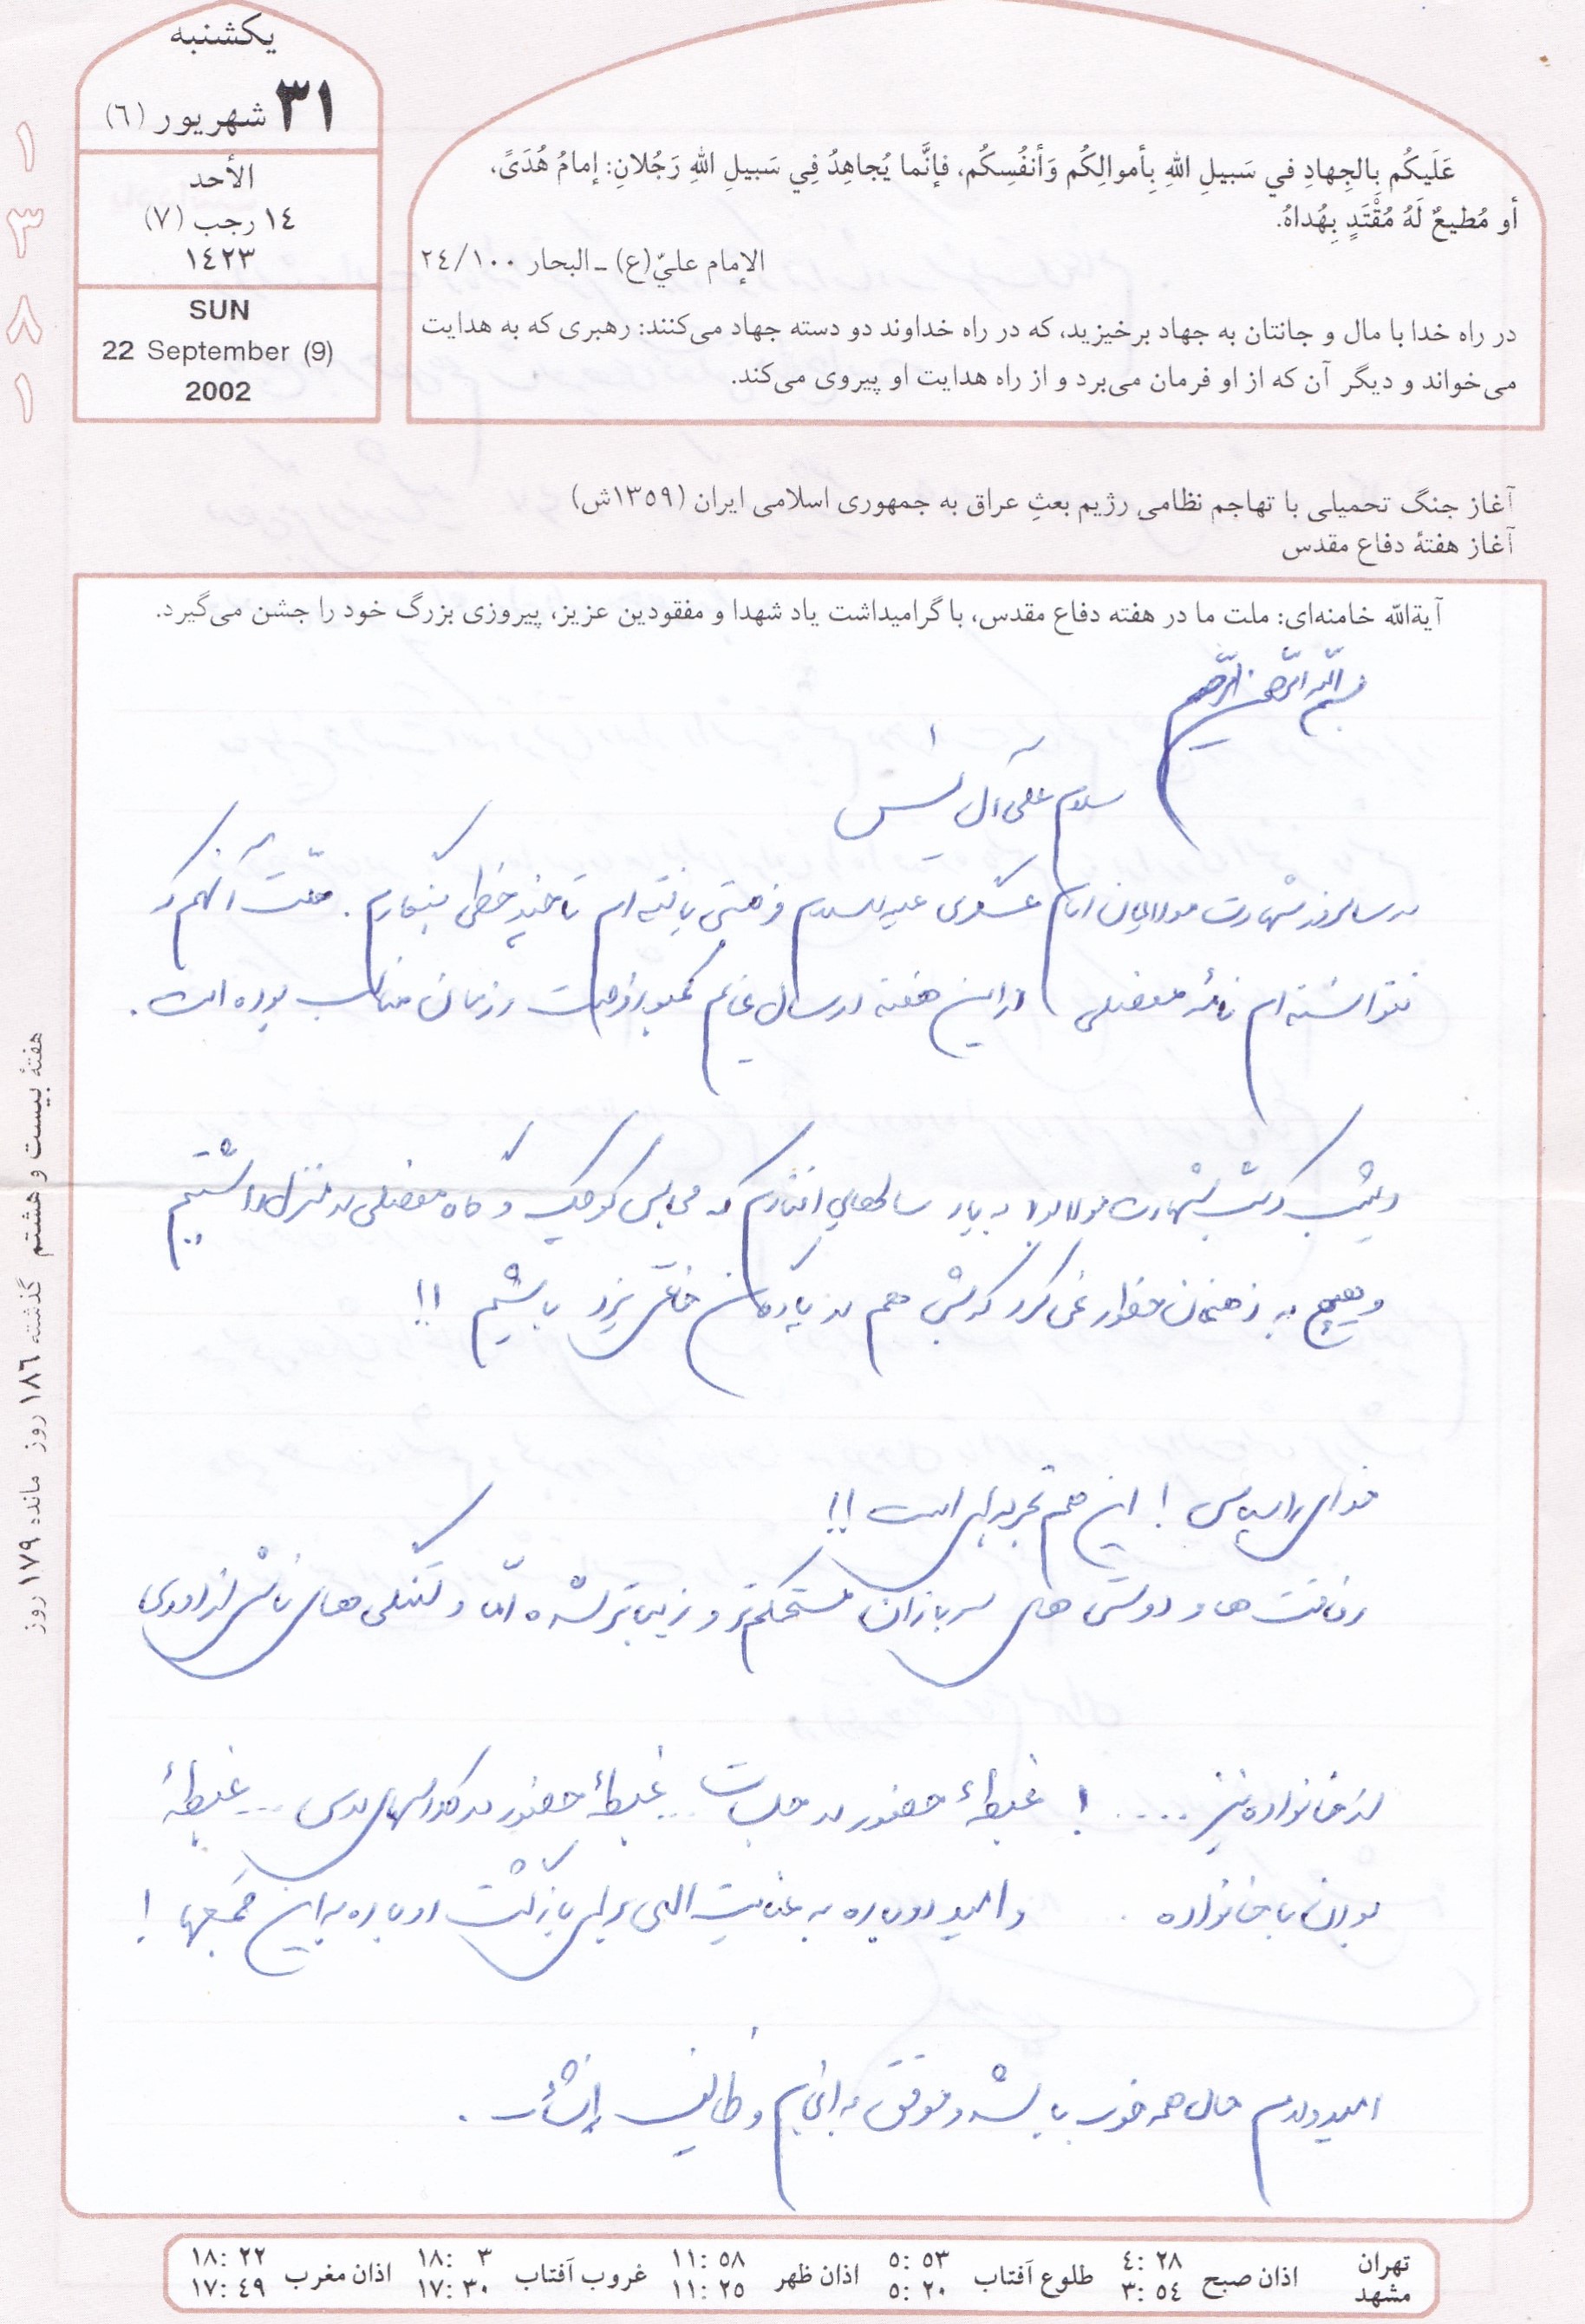 یکشنبه
۳۱ شهریور (٦)
الأحد
١٤ رجب (٧)
١٤٢٣
SUN
22 September (9)
2002
۱۳۸۱
عَلَيكُم بِالجِهادِ في سَبيلِ اللهِ بِأموالِكُم وَأنفُسِكُم، فإنَّما يُجاهِدُ فِي سَبيلِ اللهِ رَجُلانِ: إمامُ هُدَىً،
أو مُطيعٌ لَهُ مُقْتَدٍ بِهُداهُ.
الإمام عليّ(ع) ـ البحار ٢٤/١٠٠
در راه خدا با مال و جانتان به جهاد برخیزید، که در راه خداوند دو دسته جهاد می‌کنند: رهبری که به هدایت
می‌خواند و دیگر آن که از او فرمان می‌برد و از راه هدایت او پیروی می‌کند.
آغاز جنگ تحمیلی با تهاجم نظامی رژیم بعثِ عراق به جمهوری اسلامی ایران (۱۳۵۹ش)
آغاز هفتهٔ دفاع مقدس
آیةالله خامنه‌ای: ملت ما در هفته دفاع مقدس، با گرامیداشت یاد شهدا و مفقودین عزیز، پیروزی بزرگ خود را جشن می‌گیرد.
بسم الله الرحمن الرحیم
سلام علی آل یس
در سالروز شهادت مولایمان امام عسکری علیه السلام فرصتی یافته ام تا چند خطی بنگارم. علت آنهم که
نتوانسته ام نامهٔ مفصلی در این هفته ارسال نمایم کمبود فرصت و زمان مناسب بوده است.
دیشب که شب شهادت مولا بود به یاد سالهایی افتادم که مجالس کوچک و گاه مفصلی در منزل داشتیم
و هیچ به ذهنمان خطور نمی کرد که شبی هم در پادگان خاش یزد باشیم !!
خدای را سپاس ! این هم تجربه ای است !!
رفاقت ها و دوستی های سربازان مستحکم تر و زیباتر شده امّا دلتنگی های ناشی از دوری
از خانواده نیز .... ! غبطهٔ حضور در جلسات ... غبطهٔ حضور در کلاسهای درس ... غبطهٔ
بودن با خانواده . و امید دوباره به عنایت الهی برای بازگشت دوباره به این جمع‌ها !
امیدوارم حال همه خوب باشد و موفق به انجام وظایف إنشاء الله.
هفتهٔ بیست و هشتم گذشته ۱۸٦ روز مانده ۱۷۹ روز
تهران اذان صبح ٤:٢٨ طلوع آفتاب ٥:٥٣ اذان ظهر ١١:٥٨ غروب آفتاب ١٨:٣ اذان مغرب ١٨:٢٢
مشهد ٣:٥٤ ٥:٢٠ ١١:٢٥ ١٧:٣٠ ١٧:٤٩